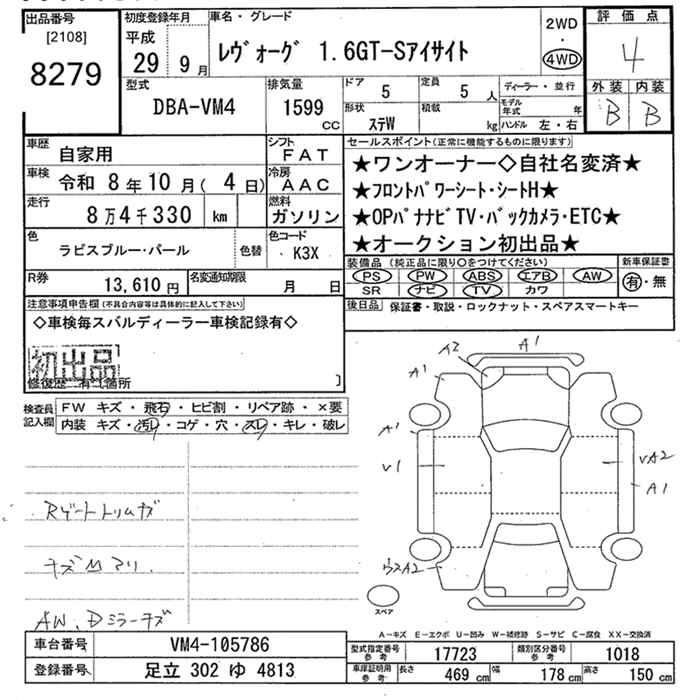 出品番号
[2108]
8279
初度登録年月
平成
29 9月
車名・グレード
ﾚｳﾞｫｰｸﾞ 1.6GT-Sアイサイト
2WD
・
4WD
評価点
4
外装 内装
B B
型式
DBA-VM4
排気量
1599
cc
ドア
5
定員
5 人
ディーラー・並行
形状
ステW
積載
kg
モデル年式 年
ハンドル 左・右
車歴
自家用
シフト
FAT
車検
令和 8年 10月( 4日)
冷房
AAC
走行
8万4千330 km
燃料
ガソリン
色
ラピスブルー・パール
色替
色コード
K3X
R券
13,610円
名変通知期限
月 日
セールスポイント(正常に機能するものに限ります)
★ワンオーナー◇自社名変済★
★ﾌﾛﾝﾄﾊﾟﾜｰｼｰﾄ・ｼｰﾄH★
★OPﾊﾟﾅﾅﾋﾞTV・ﾊﾞｯｸｶﾒﾗ・ETC★
★オークション初出品★
装備品(純正品に限り○をつけてください)
PS PW ABS エアB AW
SR ナビ TV カワ
新車保証書
有・無
後日品 保証書・取説・ロックナット・スペアスマートキー
注意事項申告欄(不具合内容等は具体的に記入して下さい)
◇車検毎スバルディーラー車検記録有◇
初出品
修復歴 有 箇所
検査員記入欄
FW キズ・飛石・ヒビ割・リペア跡・×要
内装 キズ・汚レ・コゲ・穴・スレ・キレ・破レ
Rゲートトリムキズ
キズMマリ.
AW、Dミラーキズ
A2
A1
A1
A1
V1
VA2
A1
ウスA2
スペア
A−キズ E−エクボ U−凹み W−補修跡 S−サビ C−腐食 XX−交換済
車台番号 VM4-105786
登録番号 足立 302 ゆ 4813
型式指定番号参考 17723
類別区分番号参考 1018
車庫証明用参考 長さ 469 cm 幅 178 cm 高さ 150 cm